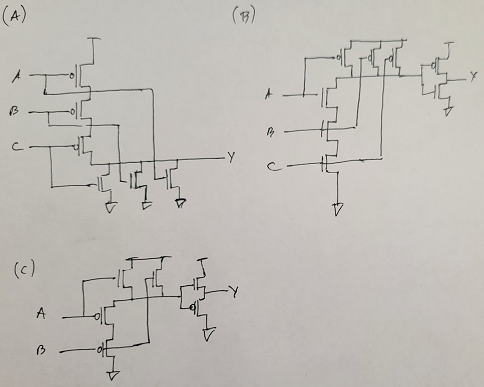 (A)
A
B
C
Y
(B)
A
B
C
Y
(C)
A
B
Y